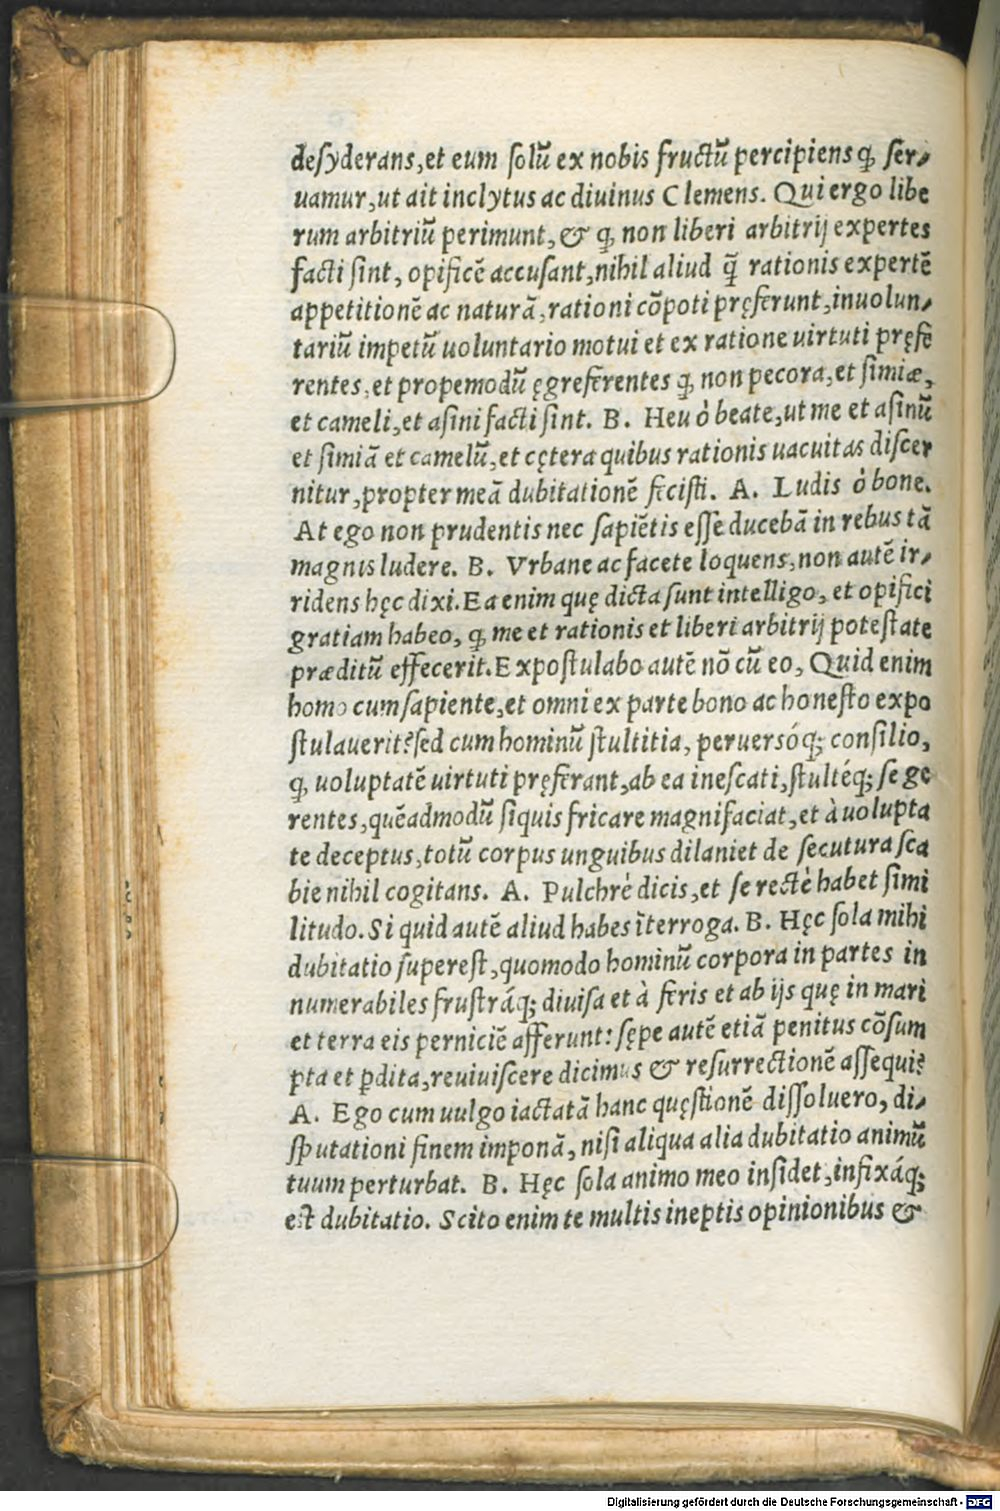 deſyderans, et eum ſolũ ex nobis fructũ percipiens ꝙ ſer-
uamur, ut ait inclytus ac diuinus Clemens. Qui ergo libe
rum arbitriũ perimunt, & ꝙ non liberi arbitrij expertes
facti ſint, opificẽ accuſant, nihil aliud q̃ rationis expertẽ
appetitionẽ ac naturã, rationi cõpoti pręferunt, inuolun-
tariũ impetũ uoluntario motui et ex ratione uirtuti pręfe
rentes, et propemodũ ęgreferentes ꝙ non pecora, et ſimiæ,
et cameli, et aſini facti ſint. B. Heu ò beate, ut me et aſinũ
et ſimiã et camelũ, et cętera quibus rationis uacuitas diſcer
nitur, propter meã dubitationẽ feciſti. A. Ludis ò bone.
At ego non prudentis nec ſapiẽtis eſſe ducebã in rebus tã
magnis ludere. B. Vrbane ac facete loquens, non autẽ ir-
ridens hęc dixi. Ea enim quę dicta ſunt intelligo, et opifici
gratiam habeo, ꝙ me et rationis et liberi arbitrij poteſtate
præditũ effecerit. Expoſtulabo autẽ nõ cũ eo, Quid enim
homo cum ſapiente, et omni ex parte bono ac honeſto expo
ſtulauerit? ſed cum hominũ ſtultitia, peruersóq; conſilio,
ꝙ uoluptatẽ uirtuti pręferant, ab ea ineſcati, ſtultéq; ſe ge
rentes, quẽadmodũ ſiquis fricare magnifaciat, et à uolupta
te deceptus, totũ corpus unguibus dilaniet de ſecutura ſca
bie nihil cogitans. A. Pulchrè dicis, et ſe rectè habet ſimi
litudo. Si quid autẽ aliud habes ĩterroga. B. Hęc ſola mihi
dubitatio ſupereſt, quomodo hominũ corpora in partes in
numerabiles fruſtráq; diuiſa et à feris et ab ijs quę in mari
et terra eis perniciẽ afferunt: ſępe autẽ etiã penitus cõſum
pta et ꝑdita, reuiuiſcere dicimus & reſurrectionẽ aſſequi?
A. Ego cum uulgo iactatã hanc quęſtionẽ diſſoluero, di-
ſputationi finem imponã, niſi aliqua alia dubitatio animũ
tuum perturbat. B. Hęc ſola animo meo inſidet, infixáq;
eſt dubitatio. Scito enim te multis ineptis opinionibus &
Digitalisierung gefördert durch die Deutsche Forschungsgemeinschaft - DFG